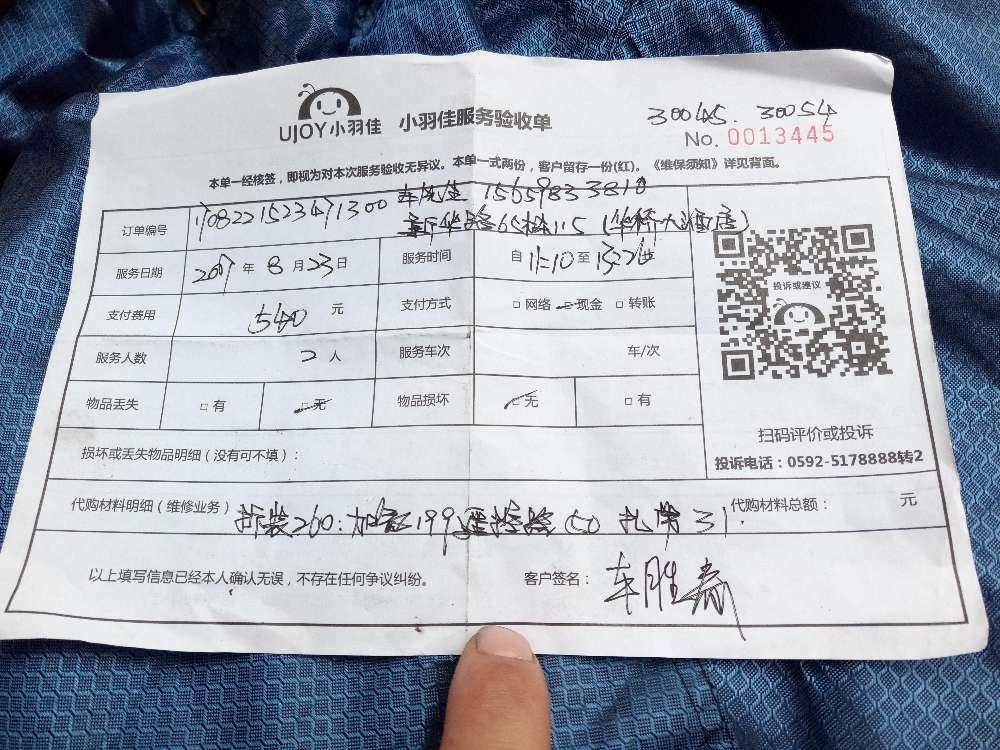 30045. 30054
UJOY小羽佳 小羽佳服务验收单
No. 0013445
本单一经核签，即视为对本次服务验收无异议。本单一式两份，客户留存一份(红)。《维保须知》详见背面。
车先生 15659833810
订单编号 1708221523471300
新华路65栋115（华侨大酒店）
服务日期 2017 年 8 月 23 日 服务时间 自 11:10 至
投诉或建议
支付费用 540 元 支付方式 □ 网络 □ 现金 □ 转账
服务人数 2 人 服务车次 车/次
物品丢失 □ 有 □ 无 物品损坏 □ 无 □ 有
扫码评价或投诉
损坏或丢失物品明细（没有可不填）：
投诉电话：0592-5178888转2
代购材料明细（维修业务） 拆装260: 199遥控器50 扎带31.
代购材料总额： 元
以上填写信息已经本人确认无误，不存在任何争议纠纷。 客户签名： 车胜春